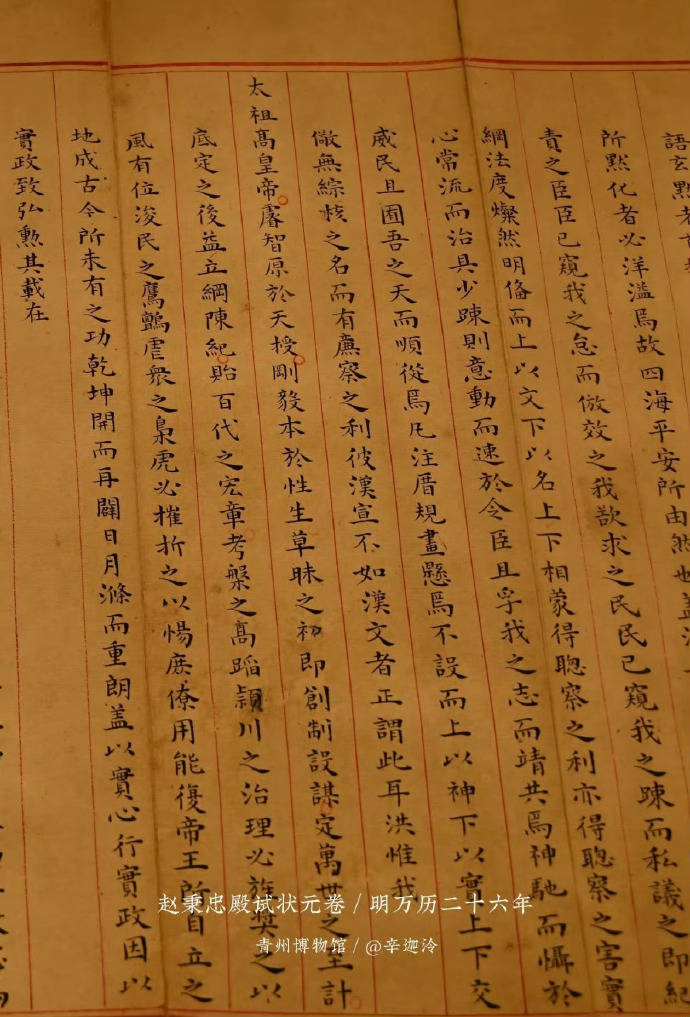 語玄默者
所默化者必洋溢焉故四海平安所由然也蓋
責之臣臣已窺我之怠而倣效之我欲求之民民已窺我之踈而私議之即紀
綱法度燦然明備而上以文下以名上下相蒙得聰察之利亦得聰察之害實
心常流而治具少踈則意動而速於令臣且孚我之志而靖共焉神馳而慴於
威民且囿吾之天而順從焉凡注厝規畫懸焉不設而上以神下以實上下交
儆無綜核之名而有廉察之利彼漢宣不如漢文者正謂此耳洪惟我
太祖高皇帝睿智原於天授剛毅本於性生草昧之初即創制設謀定萬世之至計
底定之後益立綱陳紀貽百代之宏章考槃之高蹈潁川之治理必旌奬之以
風有位浚民之鷹鸇虐衆之梟虎必摧折之以惕庶僚用能復帝王所自立之
地成古今所未有之功乾坤開而再闢日月滌而重朗蓋以實心行實政因以
實政致弘勲其載在
赵秉忠殿试状元卷/明万历二十六年
青州博物馆/@辛迦泠